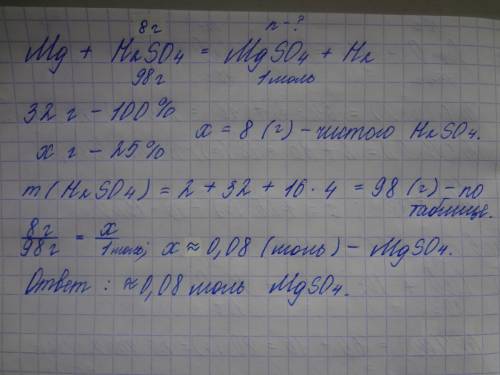 8 г n - ?
Mg + H₂SO₄ = MgSO₄ + H₂
98 г 1 моль
32 г - 100 %
x г - 25 %
x = 8 (г) - чистого H₂SO₄.
m (H₂SO₄) = 2 + 32 + 16 · 4 = 98 (г) - по
таблице.
8 г / 98 г = x / 1 моль; x ≈ 0,08 (моль) - MgSO₄.
Ответ : ≈ 0,08 моль MgSO₄.